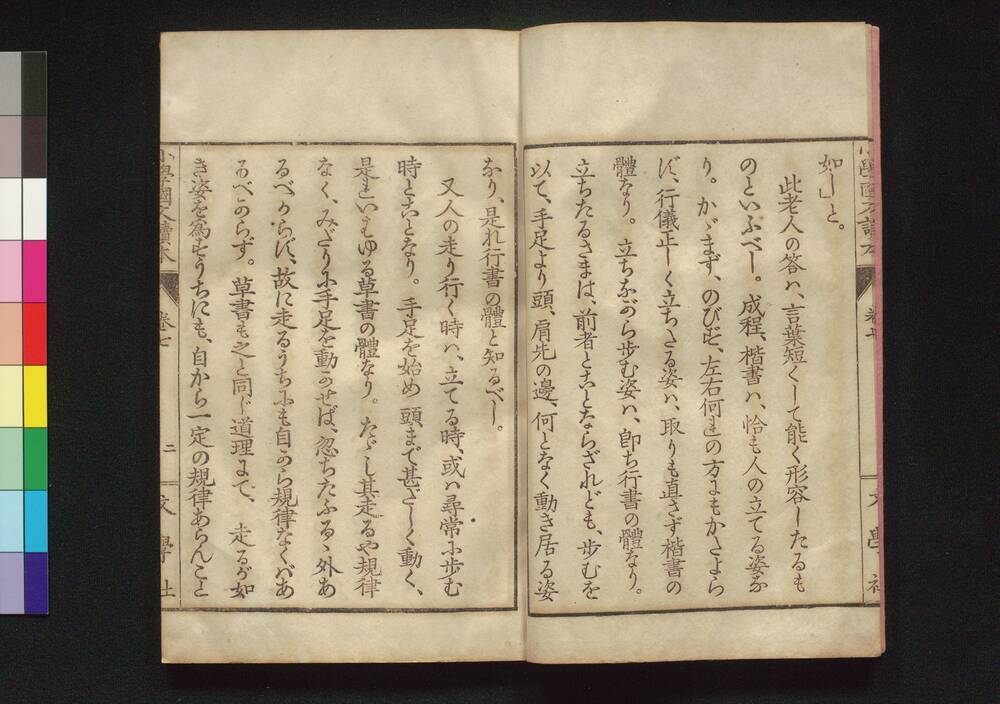 小學國文讀本
卷七
文學社
如し」と。
此老人の答ハ、言葉短くして能く形容したるも
のといふべし。成程、楷書ハ、恰も人の立てる姿な
り。かゞまず、のびず、左右何れの方にもかたよら
ず、行儀正しく立ちたる姿ハ、取りも直さず楷書の
體なり。立ちながら歩む姿ハ、卽ち行書の體なり。
立ちたるさまは、前者とことならざれども、歩むを
以て、手足より頭、肩先の邊、何となく動き居る姿
なり、是れ行書の體と知るべし。
又人の走り行く時ハ、立てる時、或ハ尋常に歩む
時とことなり。手足を始め頭まで甚だしく動く、
是れいはゆる草書の體なり。たゞし其走るや規律
なく、みだりに手足を動かせば、忽ちたふるゝ外あ
るべからず、故に走るうちにも自から規律なくばあ
るべからず。草書も之と同じ道理にて、走るが如
き姿を爲すうちにも、自から一定の規律あらんこと
小學國文讀本
卷七
二
文學社